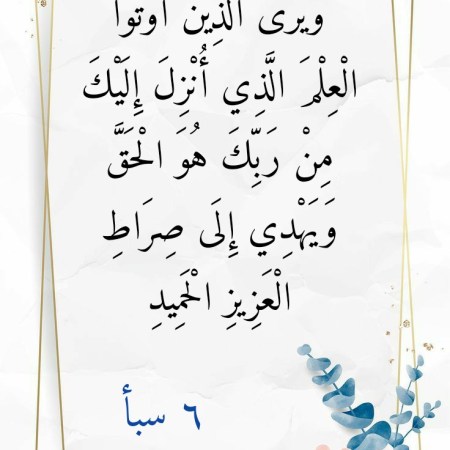 ويرى الذين أوتوا
الْعِلْمَ الَّذِي أُنْزِلَ إِلَيْكَ
مِنْ رَبِّكَ هُوَ الْحَقَّ
وَيَهْدِي إِلَى صِرَاطِ
الْعَزِيزِ الْحَمِيدِ
٦ سبأ